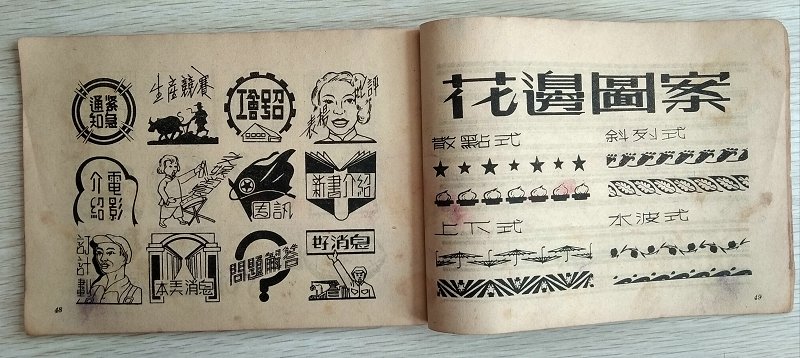 緊急
通知
生產競賽
工會
批評
表揚
電影
介紹
团訊
新書介紹
訂計劃
本弄消息
問題解答
好消息
48
花邊圖案
散點式
斜列式
上下式
水波式
49